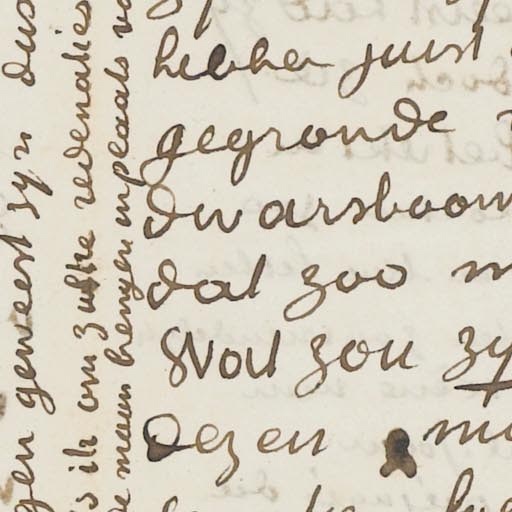 hebben juist
gegronde
dwarsboom
dat zoo
Wat zou zy
dezen
gen geweest zyn dus
ik om zulke redenaties
maar hengen inplaats